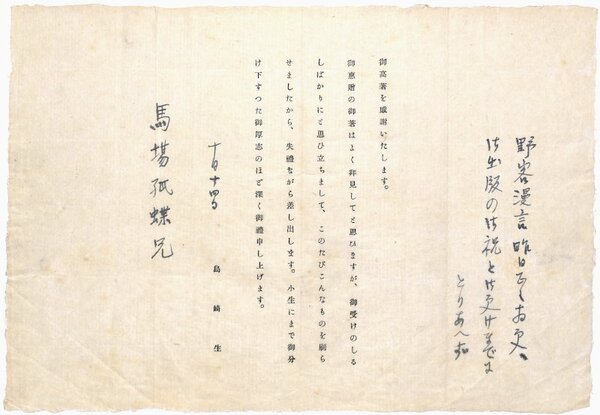 野客漫言昨日
御出版の御祝と御受けまでに
とりあへず
御高著を感謝いたします。
御惠贈の御著はよく拜見してと思ひますが、御受けのしる
しばかりにと思ひ立ちまして、このたびこんなものを刷ら
せましたから、失禮ながら差し出します。小生にまで御分
け下すつた御厚志のほど深く御禮申し上げます。
十月十四日
島崎生
馬場孤蝶兄